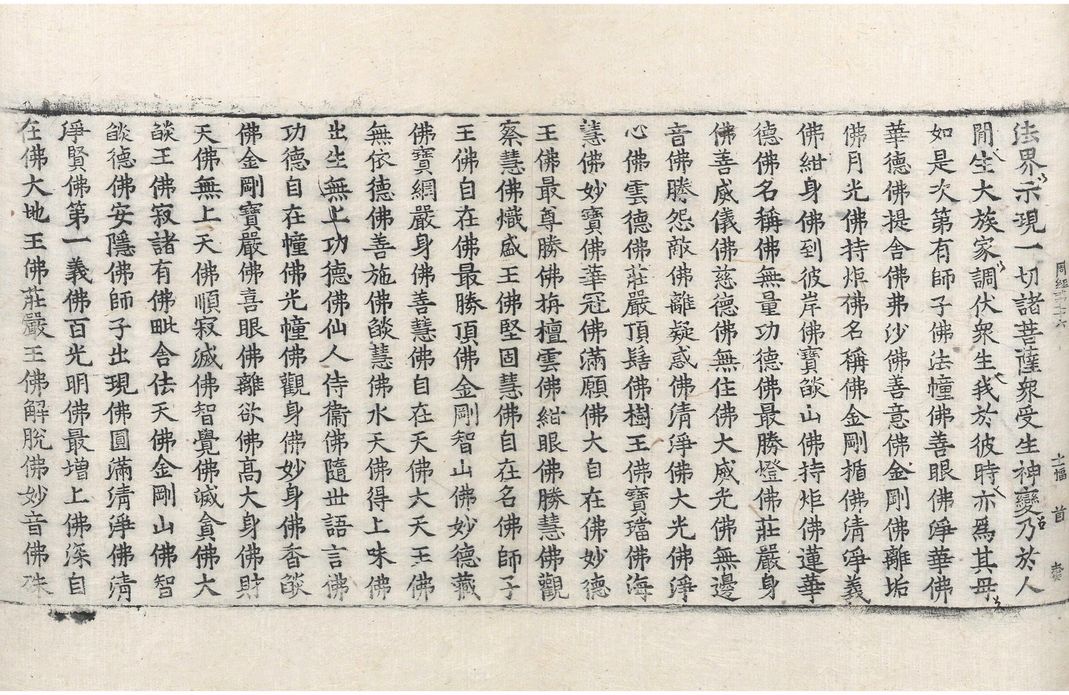 法界示現一切諸菩薩衆受生神變乃於人
間生大族家調伏衆生我於彼時亦爲其母
如是次第有師子佛法幢佛善眼佛淨華佛
華德佛提舍佛弗沙佛善意佛金剛佛離垢
佛月光佛持炬佛名稱佛金剛楯佛清淨義
佛紺身佛到彼岸佛寶燄山佛持炬佛蓮華
德佛名稱佛無量功德佛最勝燈佛莊嚴身
佛善威儀佛慈德佛無住佛大威光佛無邊
音佛勝怨敵佛離疑惑佛清淨佛大光佛淨
心佛雲德佛莊嚴頂髻佛樹王佛寶璫佛海
慧佛妙寶佛華冠佛滿願佛大自在佛妙德
王佛最尊勝佛栴檀雲佛紺眼佛勝慧佛觀
察慧佛熾盛王佛堅固慧佛自在名佛師子
王佛自在佛最勝頂佛金剛智山佛妙德藏
佛寶網嚴身佛善慧佛自在天佛大天王佛
無依德佛善施佛燄慧佛水天佛得上味佛
出生無上功德佛仙人侍衞佛隨世語言佛
功德自在幢佛光幢佛觀身佛妙身佛香燄
佛金剛寶嚴佛喜眼佛離欲佛高大身佛財
天佛無上天佛順寂滅佛智覺佛滅貪佛大
燄王佛寂諸有佛毗舍佉天佛金剛山佛智
燄德佛安隱佛師子出現佛圓滿清淨佛清
淨賢佛第一義佛百光明佛最增上佛深自
在佛大地王佛莊嚴王佛解脫佛妙音佛殊